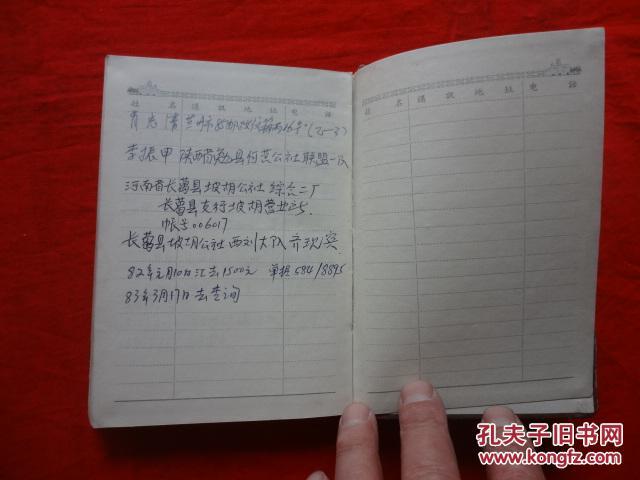 姓 名 通 讯 地 址 电 话
肖志清 兰州市
李振甲 陕西省勉县 公社联盟一队
河南省长葛县坡胡公社 综合二厂
长葛县支行坡胡营业所
帐号006017
长葛县坡胡公社西刘大队
82年元月10日汇去1500元 单据684/8895
83年3月17日去查询
姓 名 通 讯 地 址 电 话
孔夫子旧书网
www.kongfz.com